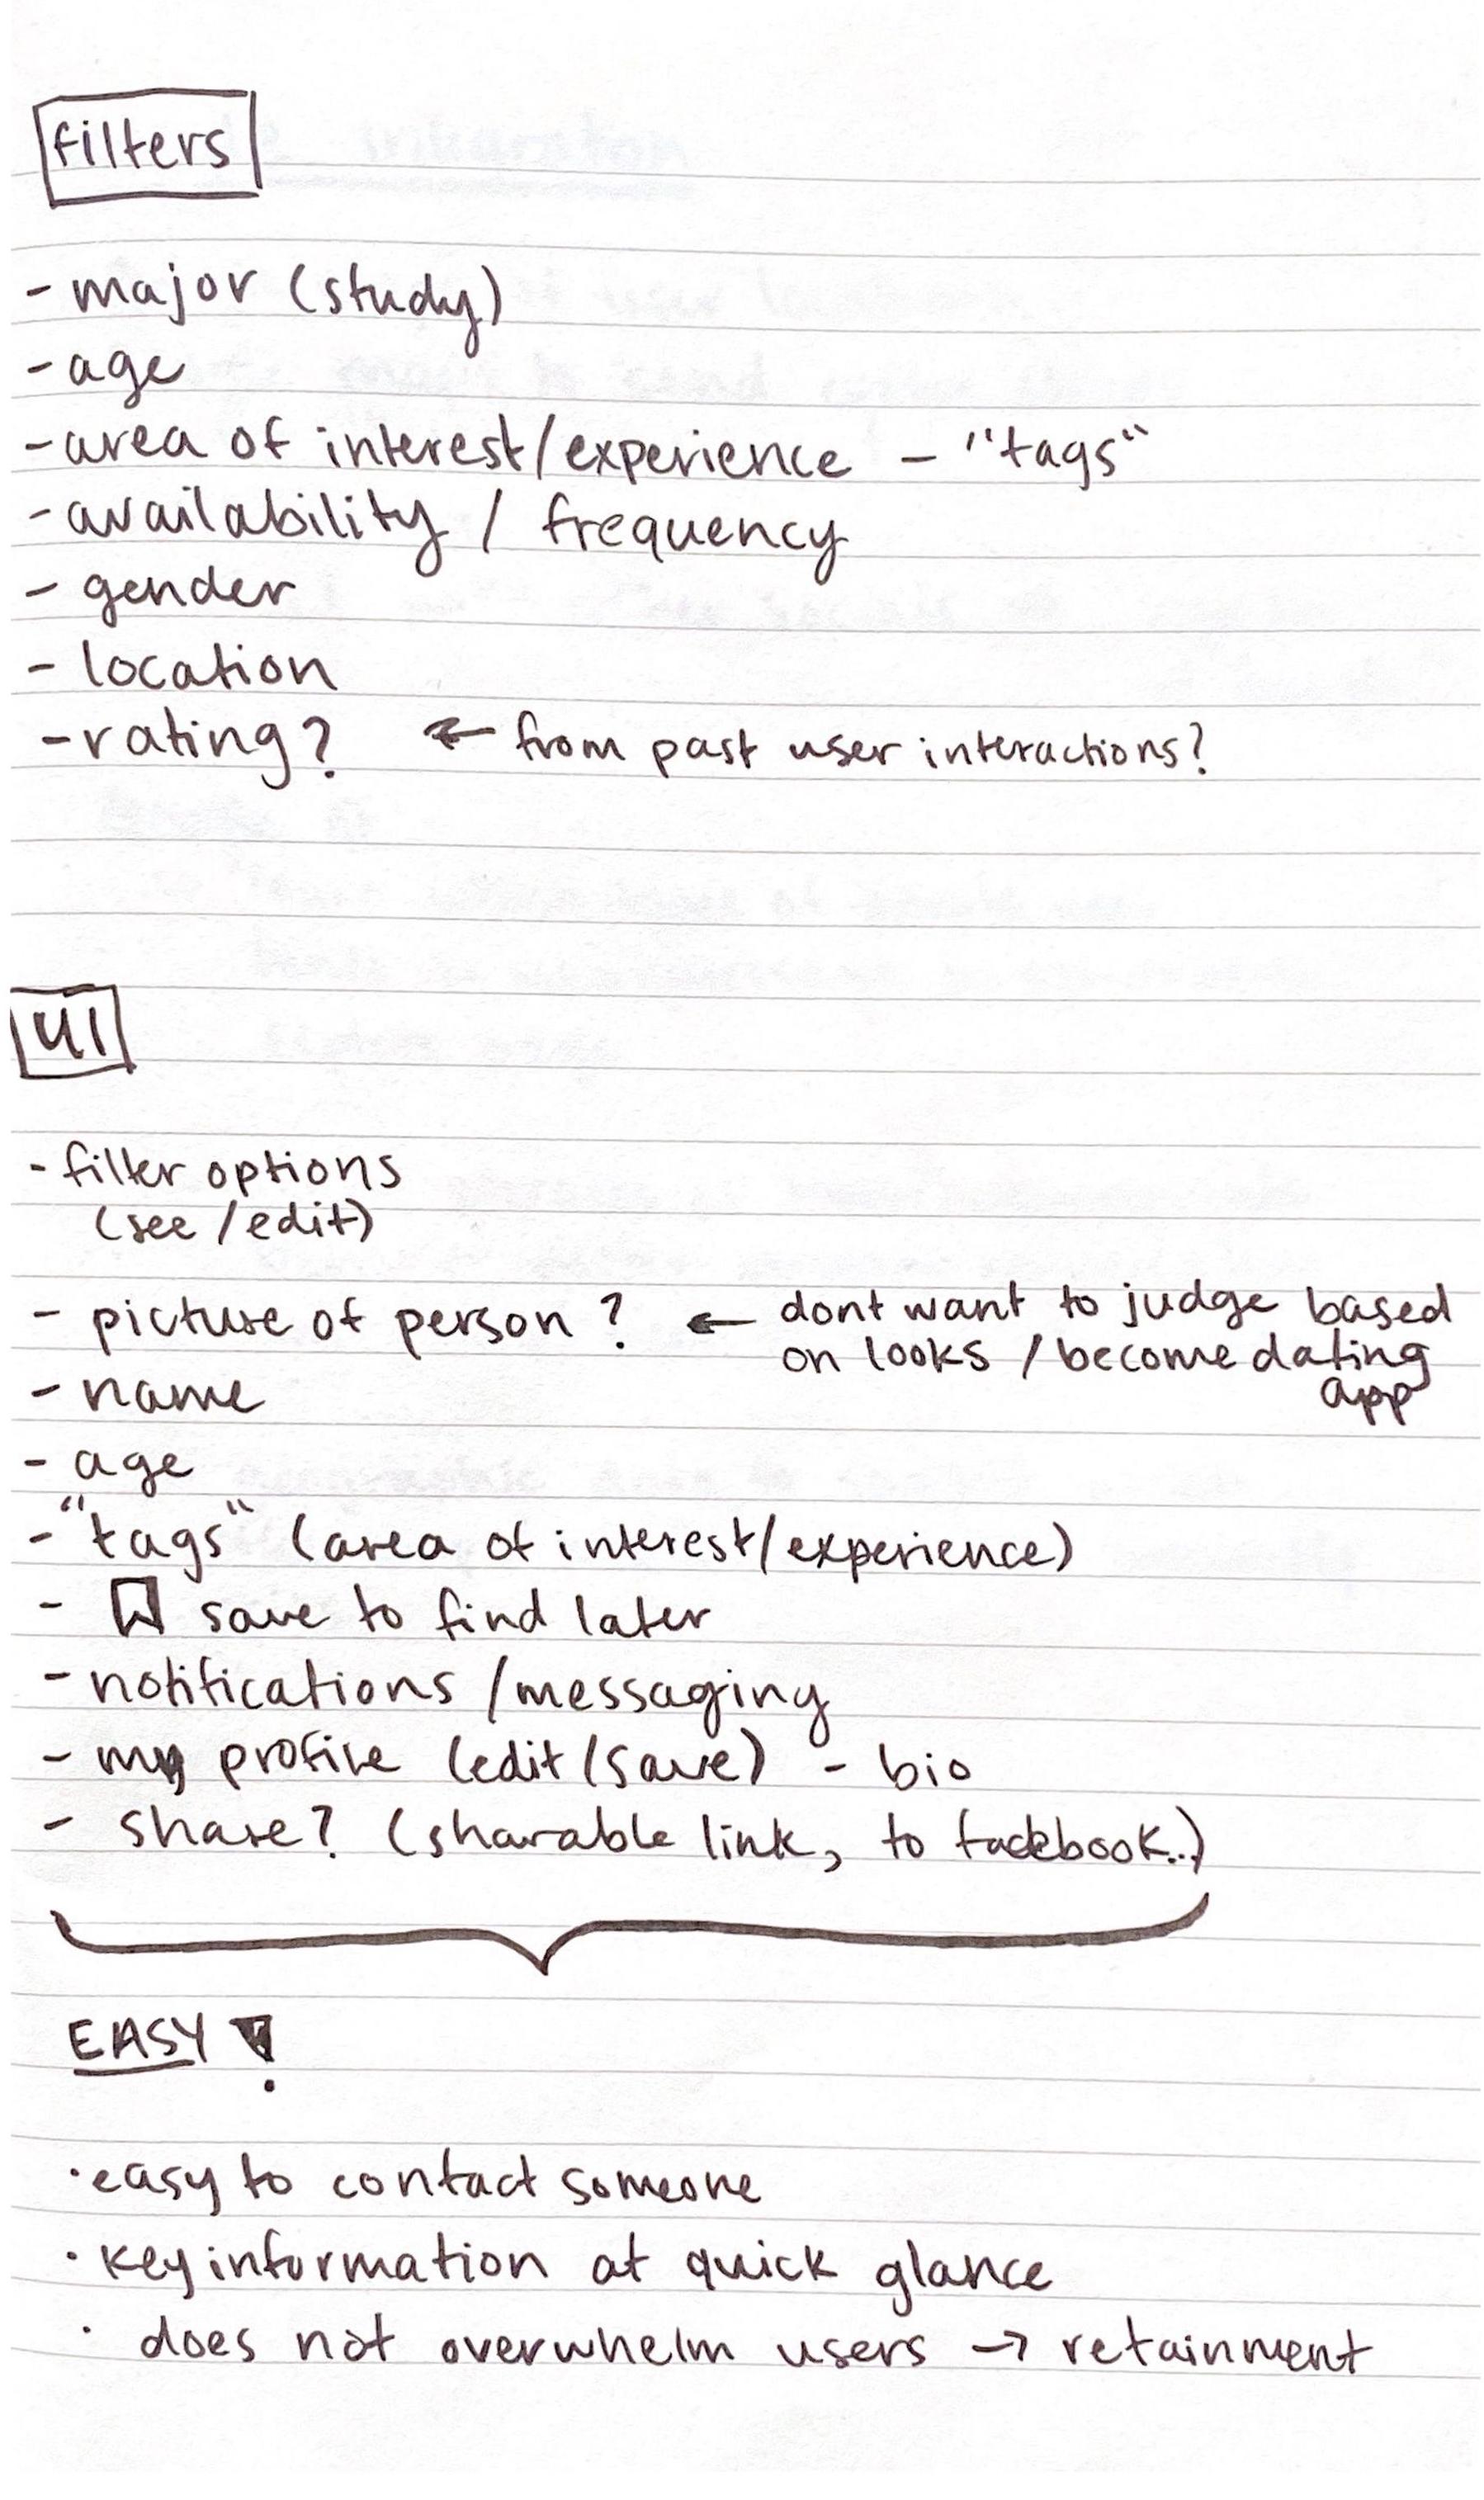 filters
- major (study)
- age
- area of interest/experience - "tags"
- availability / frequency
- gender
- location
- rating? ← from past user interactions?
UI
- filter options
(see / edit)
- picture of person? ← dont want to judge based
on looks / become dating
app
- name
- age
- "tags" (area of interest/experience)
- save to find later
- notifications / messaging
- my profile (edit/save) - bio
- share? (sharable link, to facebook..)
EASY!
· easy to contact someone
· key information at quick glance
· does not overwhelm users → retainment